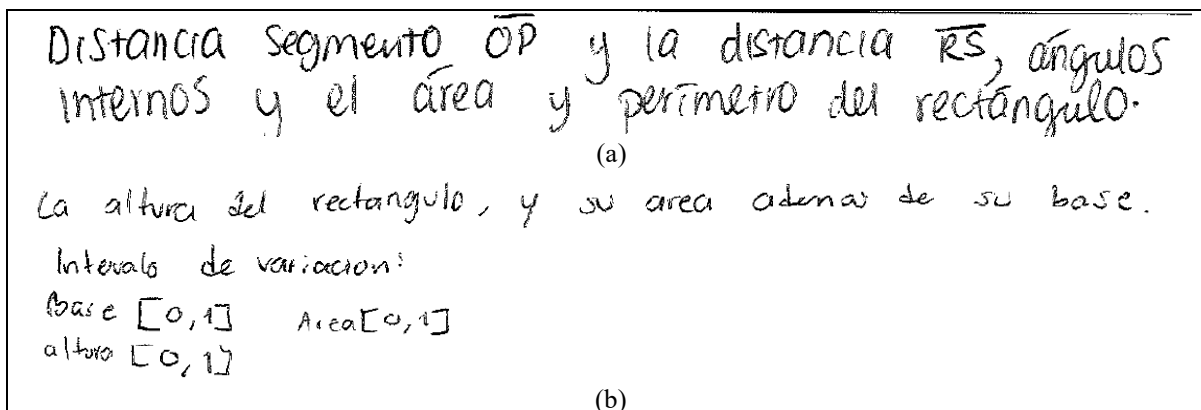 Distancia segmento O̅P̅ y la distancia R̅S̅, ángulos
internos y el área y perímetro del rectángulo.
(a)
La altura del rectangulo, y su area ademas de su base.
Intervalo de variacion:
Base [0,1] Area[0,1]
altura [0,1]
(b)